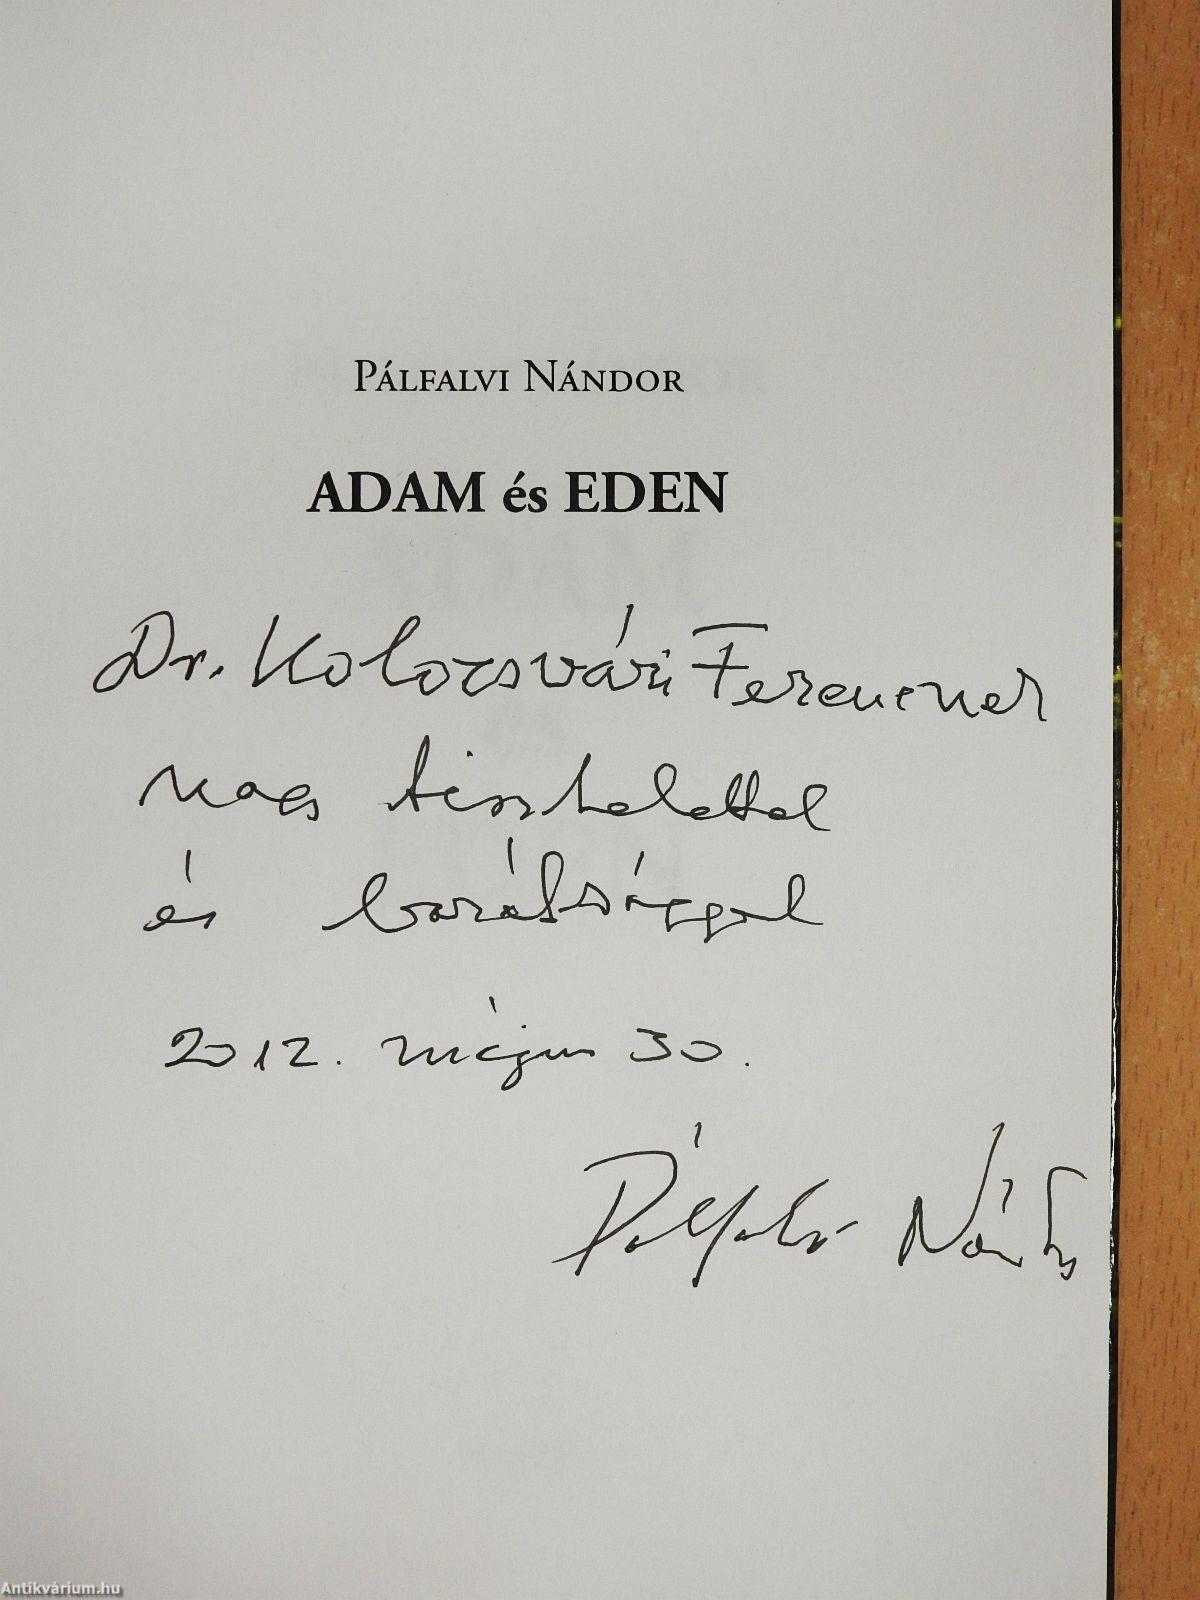 PÁLFALVI NÁNDOR
ADAM és EDEN
Dr. Kolozsvári Ferencnek
nagy tisztelettel
és barátsággal
2012. május 30.
Pálfalvi Nándor
Antikvárium.hu